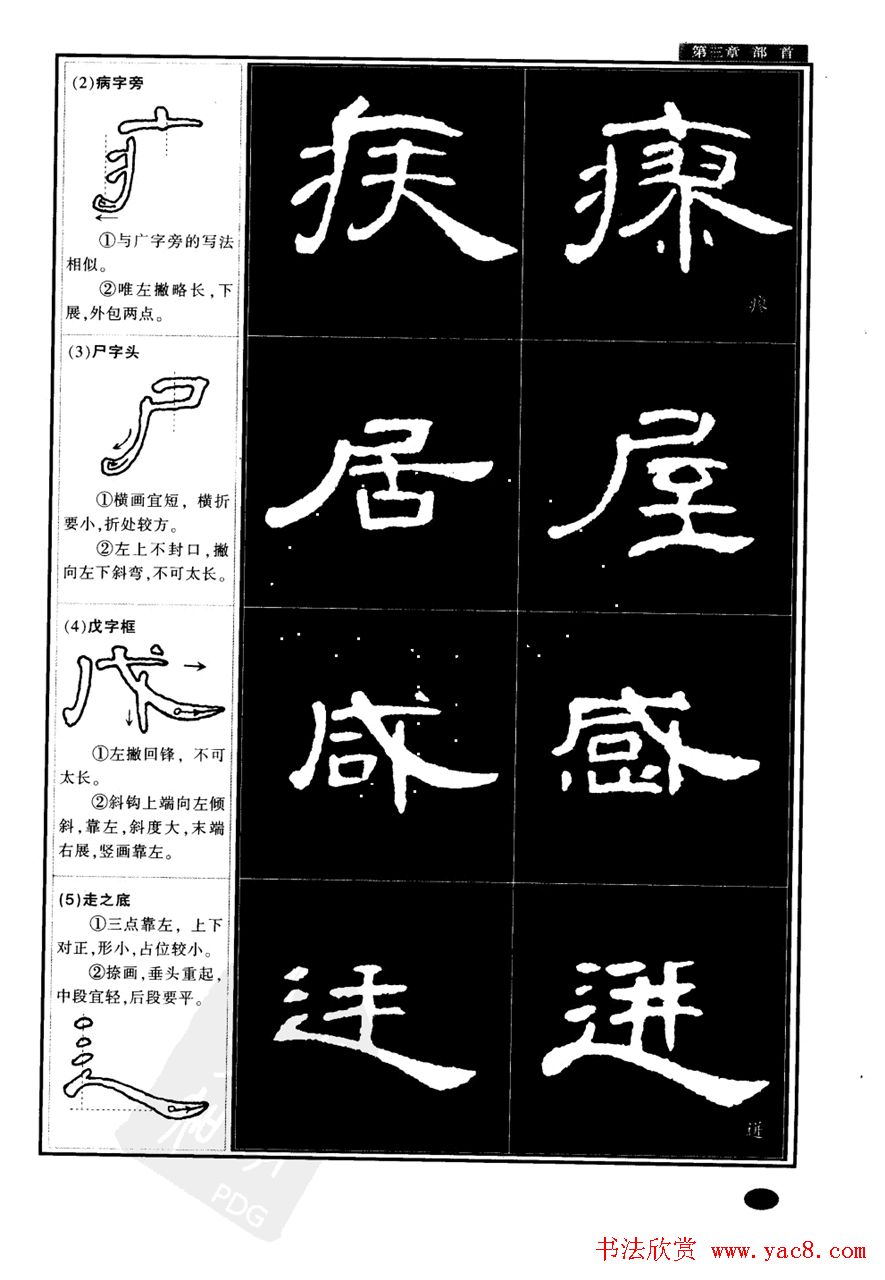 第三章 部 首
(2)病字旁
①与广字旁的写法
相似。
②唯左撇略长,下
展,外包两点。
疾
(3)尸字头
①横画宜短，横折
要小,折处较方。
②左上不封口,撇
向左下斜弯,不可太长。
居 屋
(4)戊字框
①左撇回锋，不可
太长。
②斜钩上端向左倾
斜,靠左,斜度大,末端
右展,竖画靠左。
咸 感
(5)走之底
①三点靠左，上下
对正,形小,占位较小。
②捺画,垂头重起,
中段宜轻,后段要平。
逬
逬
PDG
书法欣赏 www.yac8.com